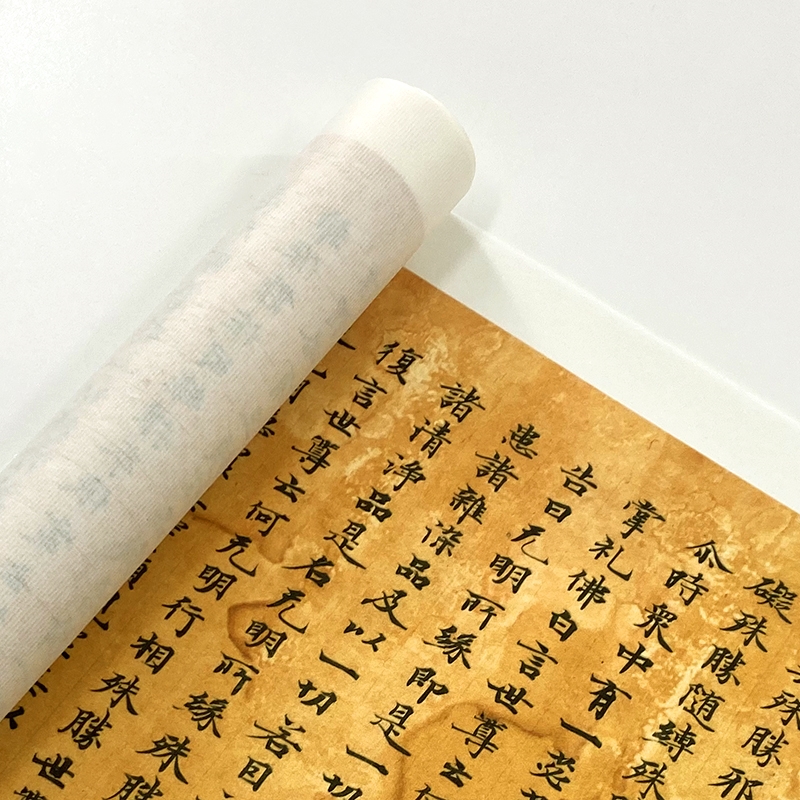 殊勝邪
礙殊勝隨縛殊
尒時衆中有一苾
掌礼佛白言世尊云何
告曰无明所緣即是一切
患諸雜染品及以一切若因
諸清淨品是名无明所緣殊勝
復言世尊云何无明行相殊勝世尊